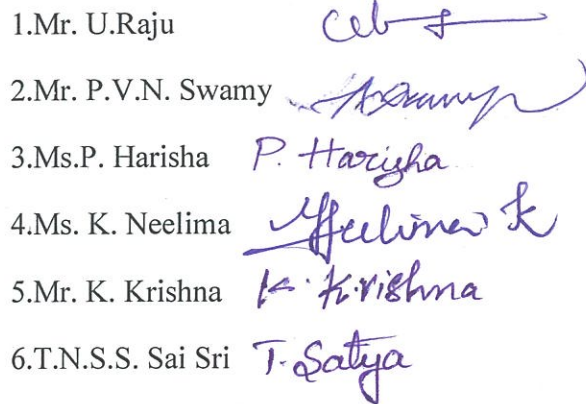 1.Mr. U.Raju
2.Mr. P.V.N. Swamy
3.Ms.P. Harisha P. Harisha
4.Ms. K. Neelima Neelima K
5.Mr. K. Krishna K. Krishna
6.T.N.S.S. Sai Sri T. Satya